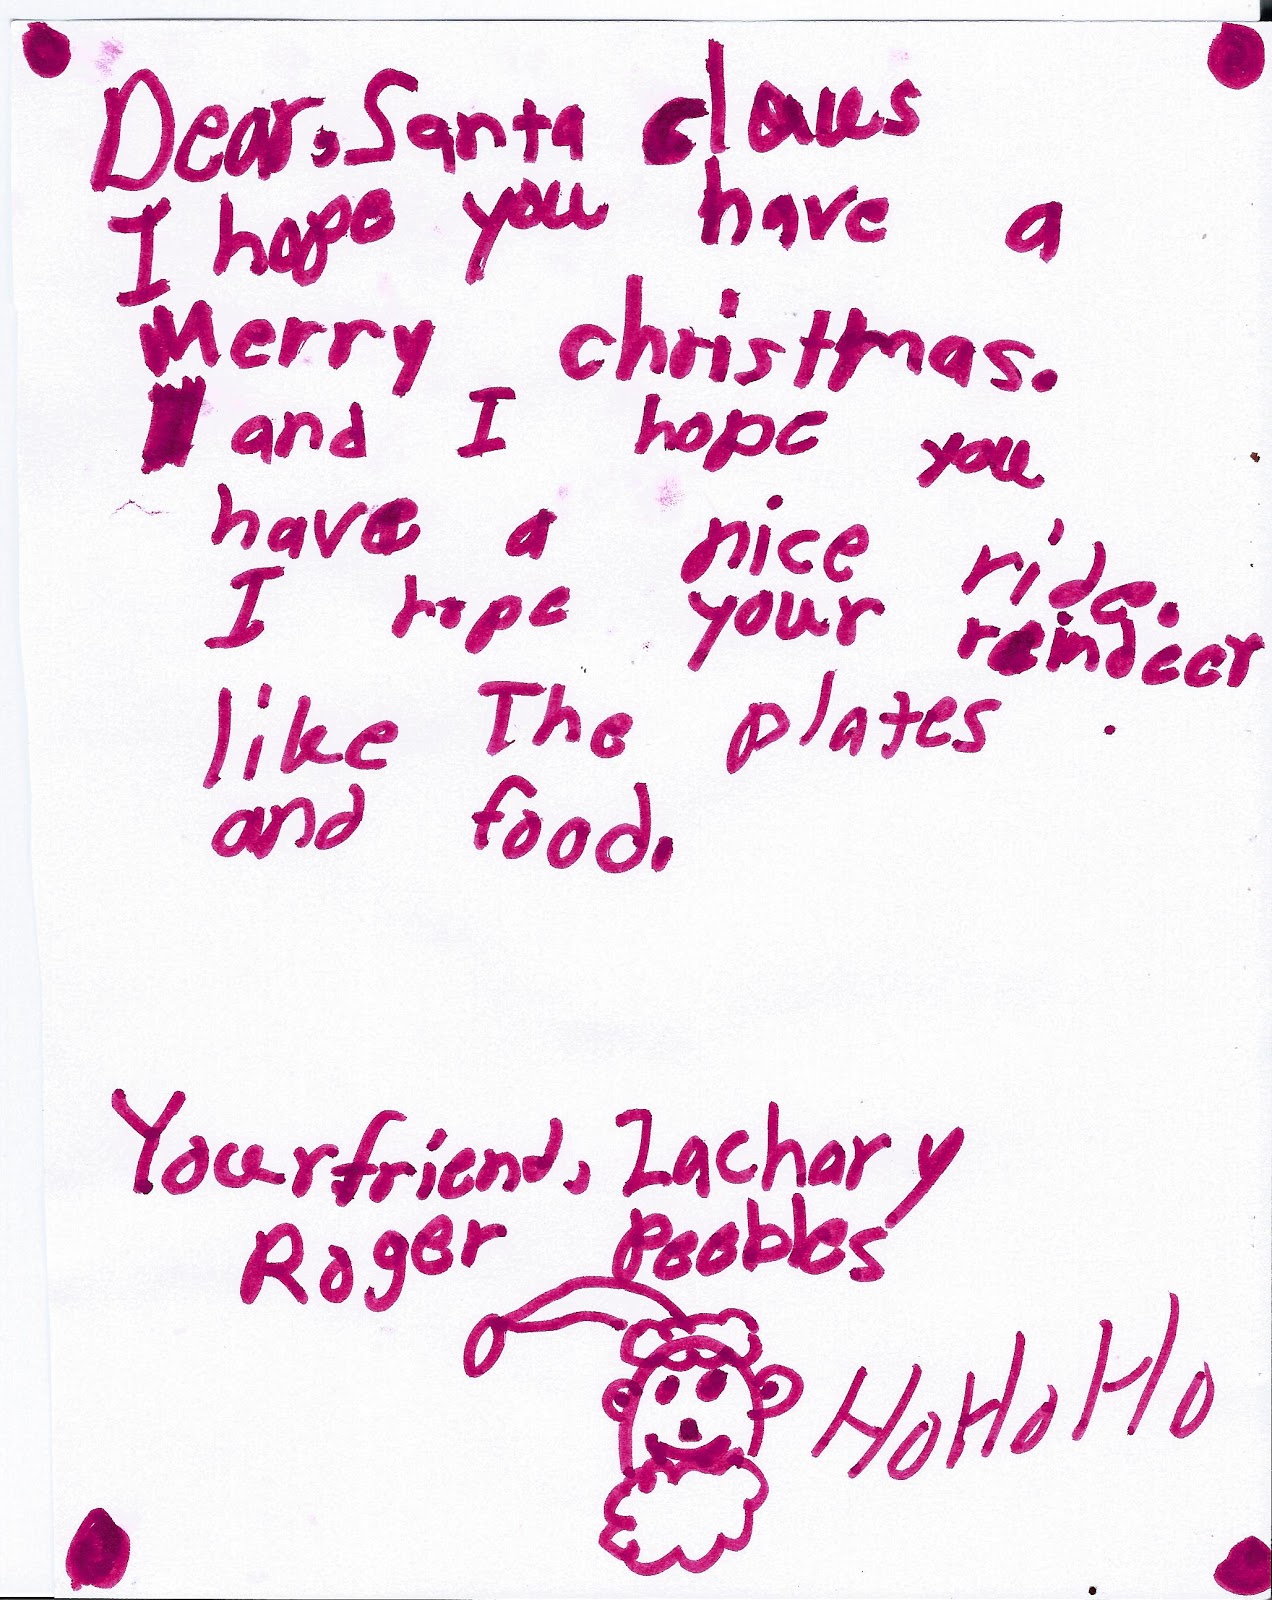 Dear, Santa claus
I hope you have a
Merry christmas.
and I hope you
have a nice ride.
I hope your reindeer
like The plates
and food.
Your friend, Zachary
Roger Peebles
HoHoHo